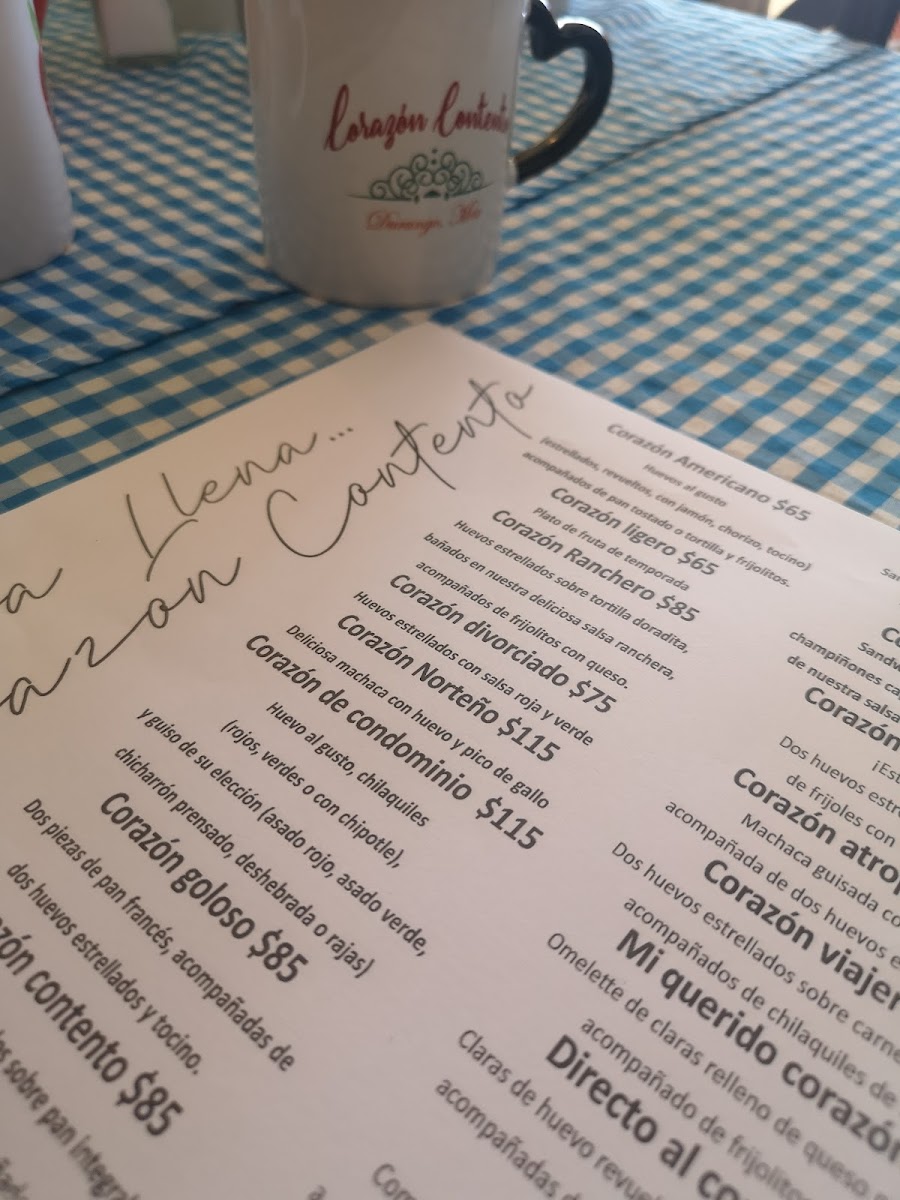 Corazón Contento
Durango, Mex
a Llena...
azón Contento
Corazón Americano $65
Huevos al gusto
(estrellados, revueltos, con jamón, chorizo, tocino)
acompañados de pan tostado o tortilla y frijolitos.
Corazón ligero $65
Plato de fruta de temporada
Corazón Ranchero $85
Huevos estrellados sobre tortilla doradita,
bañados en nuestra deliciosa salsa ranchera,
acompañados de frijolitos con queso.
Corazón divorciado $75
Huevos estrellados con salsa roja y verde
Corazón Norteño $115
Deliciosa machaca con huevo y pico de gallo
Corazón de condominio $115
Huevo al gusto, chilaquiles
(rojos, verdes o con chipotle),
y guiso de su elección (asado rojo, asado verde,
chicharrón prensado, deshebrada o rajas)
Corazón goloso $85
Dos piezas de pan francés, acompañadas de
dos huevos estrellados y tocino.
zón contento $85
os sobre pan integral
Sandw
champiñones ca
de nuestra salsa
Corazón
¡Est
Dos huevos estre
de frijoles con
Corazón atrop
Machaca guisada co
acompañada de dos huevos e
Corazón viajer
Dos huevos estrellados sobre carne
acompañados de chilaquiles de
Mi querido corazón
Omelette de claras relleno de queso
acompañado de frijolito
Directo al co
Claras de huevo revue
acompañadas d